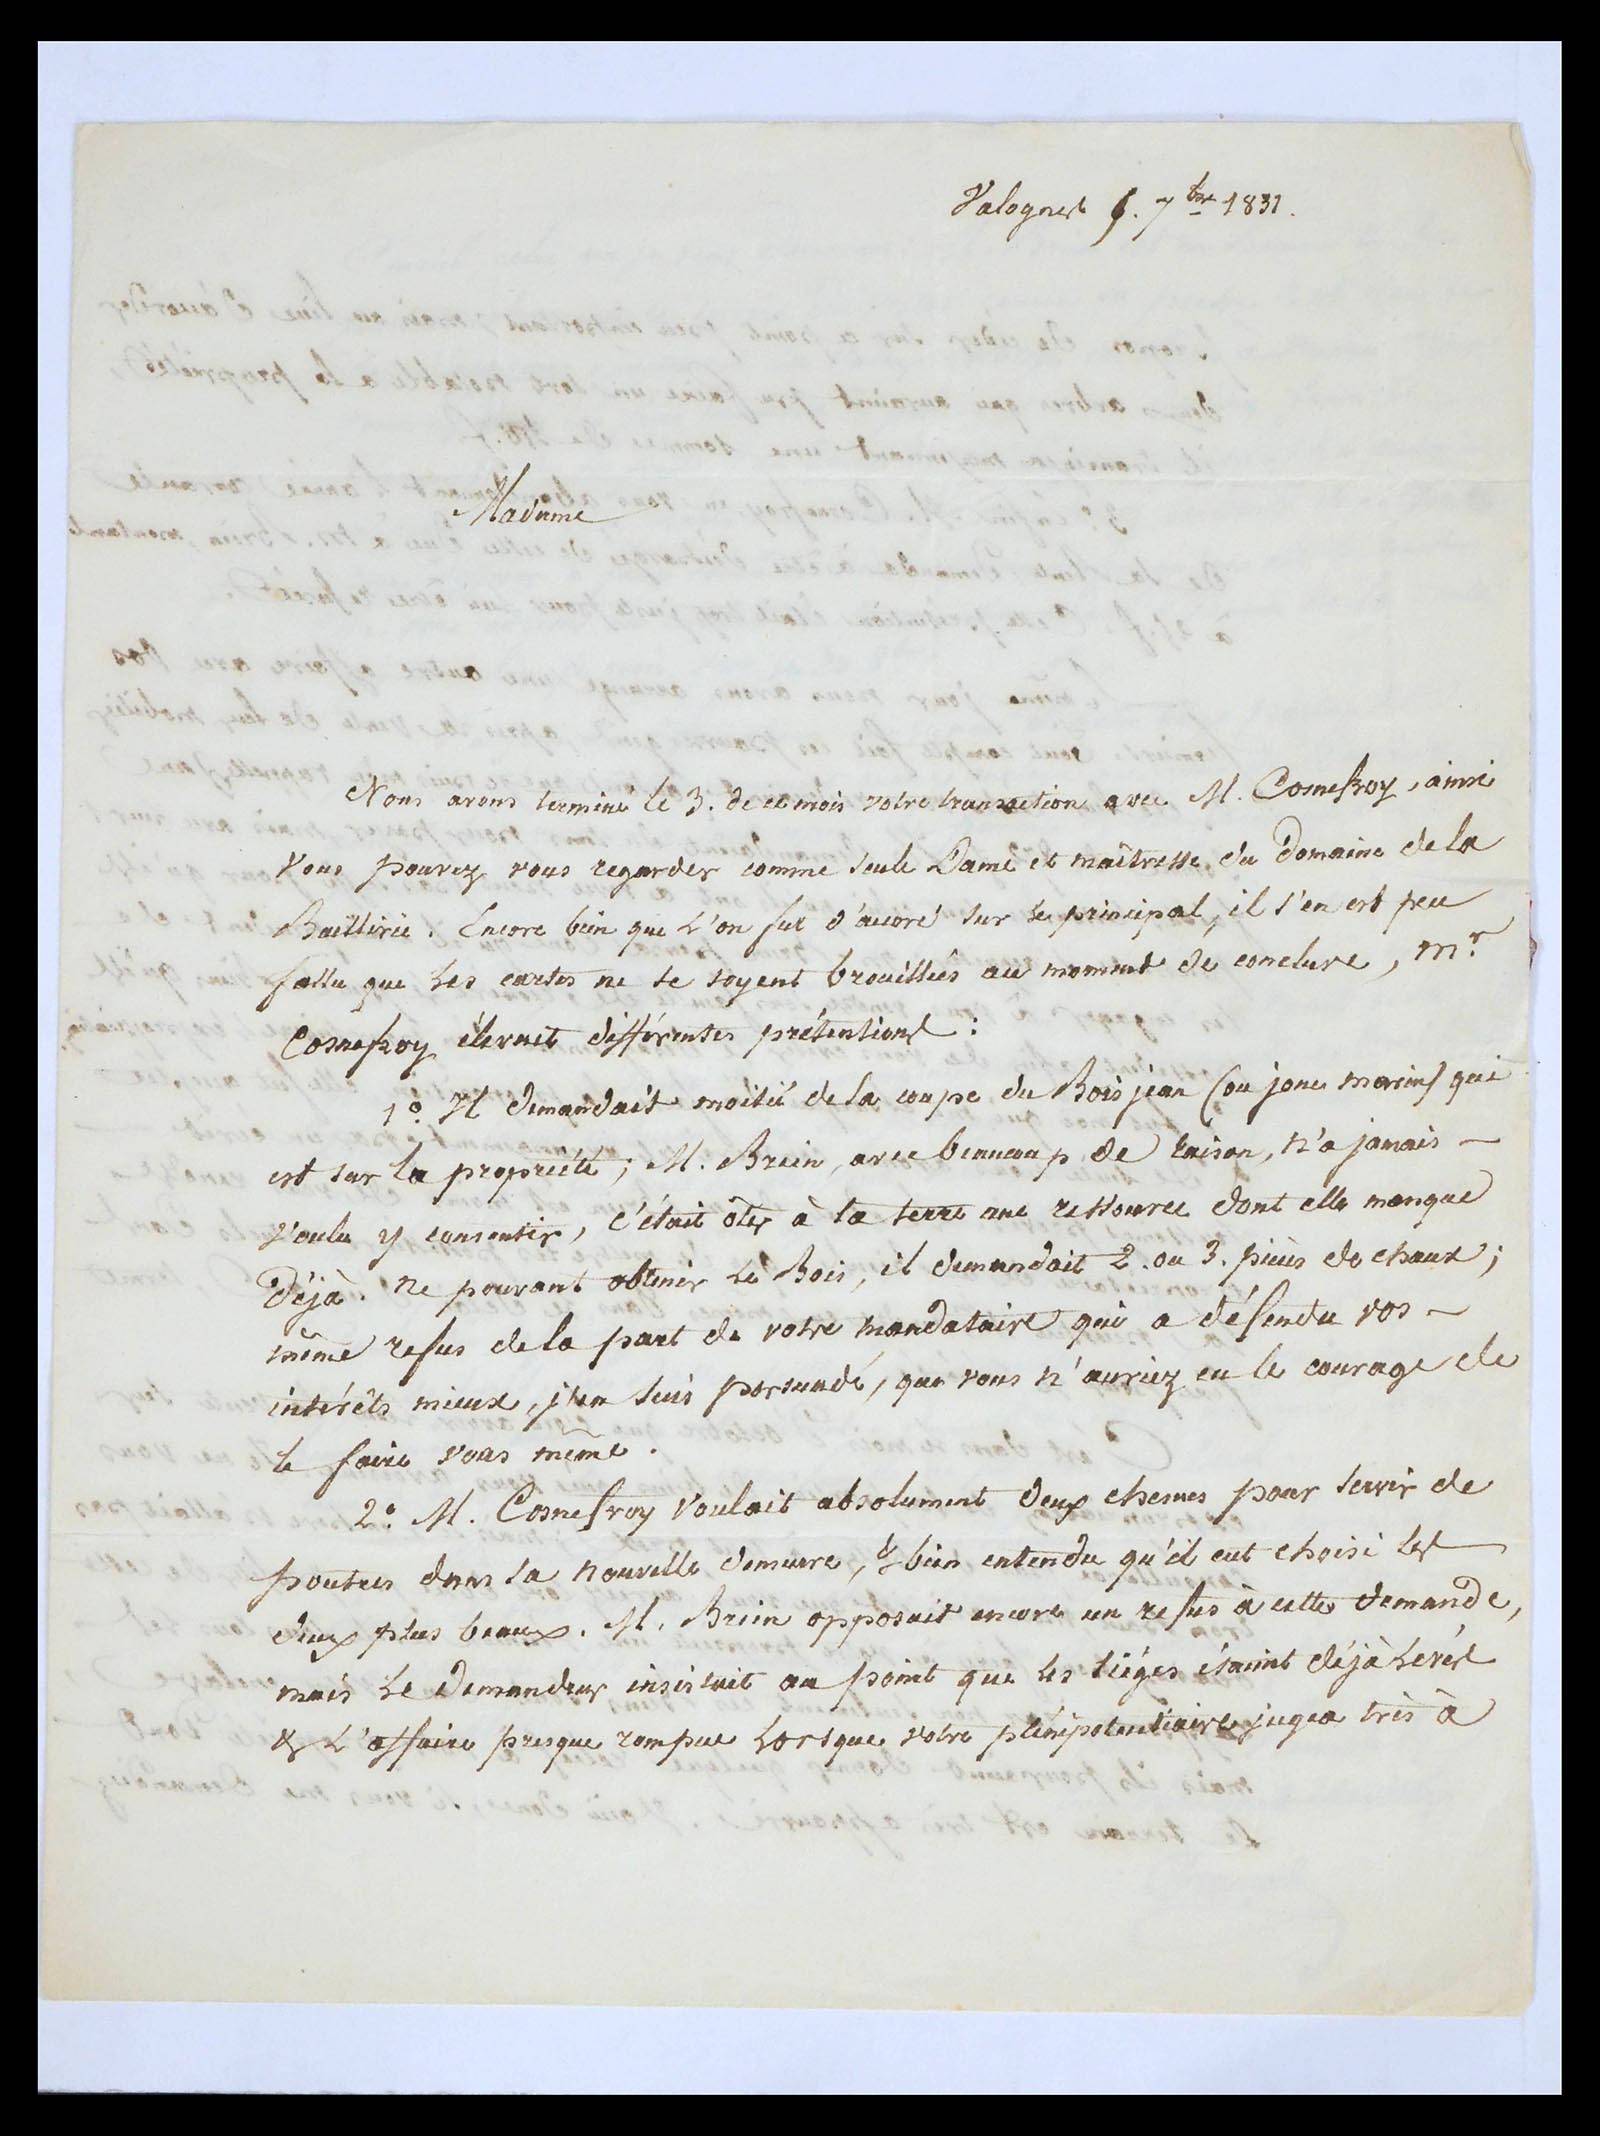 Valognes 6. 7bre 1831.
Madame
Nous avons terminé le 3. de ce mois votre transaction avec M. Cosnefroy, ainsi
vous pouvez vous regarder comme seule Dame et maîtresse du Domaine de la
Encore bien que l'on fut d'accord sur le principal, il s'en est peu
fallu que les cartes ne se soyent brouillées au moment de conclure, Mr
Cosnefroy élevait différentes prétentions :
1o Il demandait moitié de la coupe du Bois jean (ou jonc marin) qui
est sur la propriété ; M. Brein, avec beaucoup de raison, n'a jamais —
voulu y consentir, c'était ôter à la terre une ressource dont elle manque
déjà. Ne pouvant obtenir le Bois, il demandait 2. ou 3. pièces de chaux ;
même refus de la part de votre mandataire qui a défendu vos —
intérêts mieux, j'en suis persuadé, que vous n'auriez eu le courage de
le faire vous même.
2o M. Cosnefroy voulait absolument deux chenes pour servir de
poutres dans sa nouvelle demeure, & bien entendu qu'il eut choisi les —
deux plus beaux. M. Brein opposait encore un refus à cette demande,
mais le Demandeur insistait au point que les siéges étaient déjà levés
& l'affaire presque rompue lorsque votre plénipotentiaire jugea très à